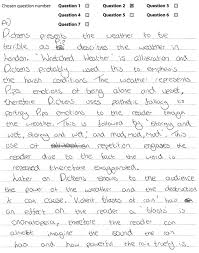 Chosen question number: Question 1 Question 2 Question 3
Question 4 Question 5 Question 6
Question 7
A)
Dickens presents the weather to be
terrible as Pip describes the weather in
London. 'Wretched Weather' is alliteration and
Dickens probably used this to emphasis
the harsh conditions. The weather represents
Pips emotions of being alone and upset,
therefore Dickens uses pathetic fallacy to
portray Pips emotions to the reader through
the weather. This is followed by 'stormy and
wet, stormy and wet,' and 'mud, mud, mud'. This
use of repetition engages the
reader due to the fact the word is
repeated therefore exaggerated.
Later on Dickens shows to the audience
the power of the weather and the destruction
it can cause. 'Violent blasts of rain' has
an effect on the reader as 'blasts' is
onomatopoeia, therefore the reader can
almost imagine the sound the rain
has and how powerful the rain truely is.